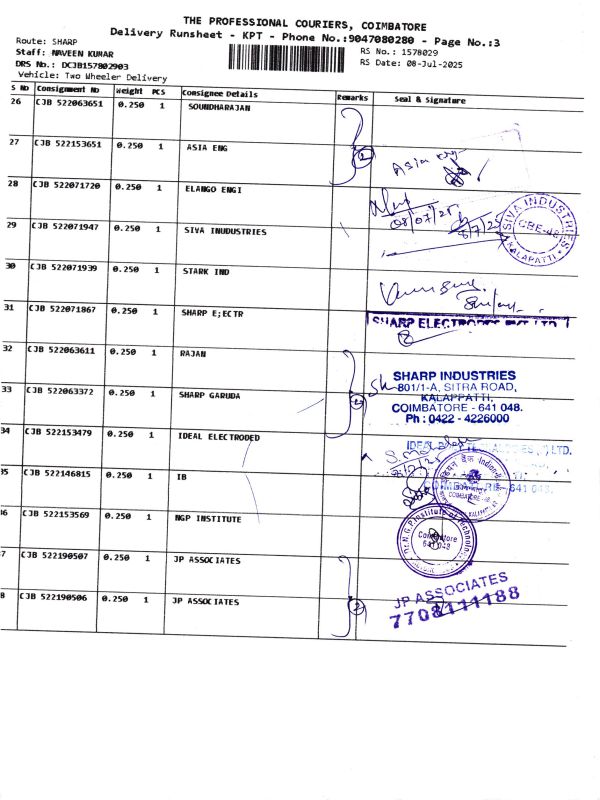 THE PROFESSIONAL COURIERS, COIMBATORE
Delivery Runsheet - KPT - Phone No.:9047080280 - Page No.:3
Route: SHARP
RS No.: 1578029
Staff: NAVEEN KUMAR
RS Date: 08-Jul-2025
DRS No.: DCJB157802903
Vehicle: Two Wheeler Delivery
S No Consignment No Weight PCS Consignee Details Remarks Seal & Signature
26 CJB 522063651 0.250 1 SOUNDHARAJAN
27 CJB 522153651 0.250 1 ASIA ENG 2 Asia eng
28 CJB 522071720 0.250 1 ELANGO ENGI
08/07/25
8/7/25
29 CJB 522071947 0.250 1 SIVA INUDUSTRIES
SIVA INDUSTRIES
CBE-48
KALAPATTI.
30 CJB 522071939 0.250 1 STARK IND
31 CJB 522071867 0.250 1 SHARP E;ECTR
SHARP ELECTRODES PVT LTD
32 CJB 522063611 0.250 1 RAJAN
SHARP INDUSTRIES
801/1-A, SITRA ROAD,
33 CJB 522063372 0.250 1 SHARP GARUDA 2
KALAPPATTI,
COIMBATORE - 641 048.
Ph : 0422 - 4226000
34 CJB 522153479 0.250 1 IDEAL ELECTRODED
IDEAL LTD.
35 CJB 522146815 0.250 1 IB
COIMBATORE-48
COIMBATORE - 641 048.
36 CJB 522153569 0.250 1 NGP INSTITUTE
Dr.N.G.P.Institute of Technology
Coimbatore
641 048
37 CJB 522190507 0.250 1 JP ASSOCIATES
38 CJB 522190506 0.250 1 JP ASSOCIATES 2
JP ASSOCIATES
7708111188